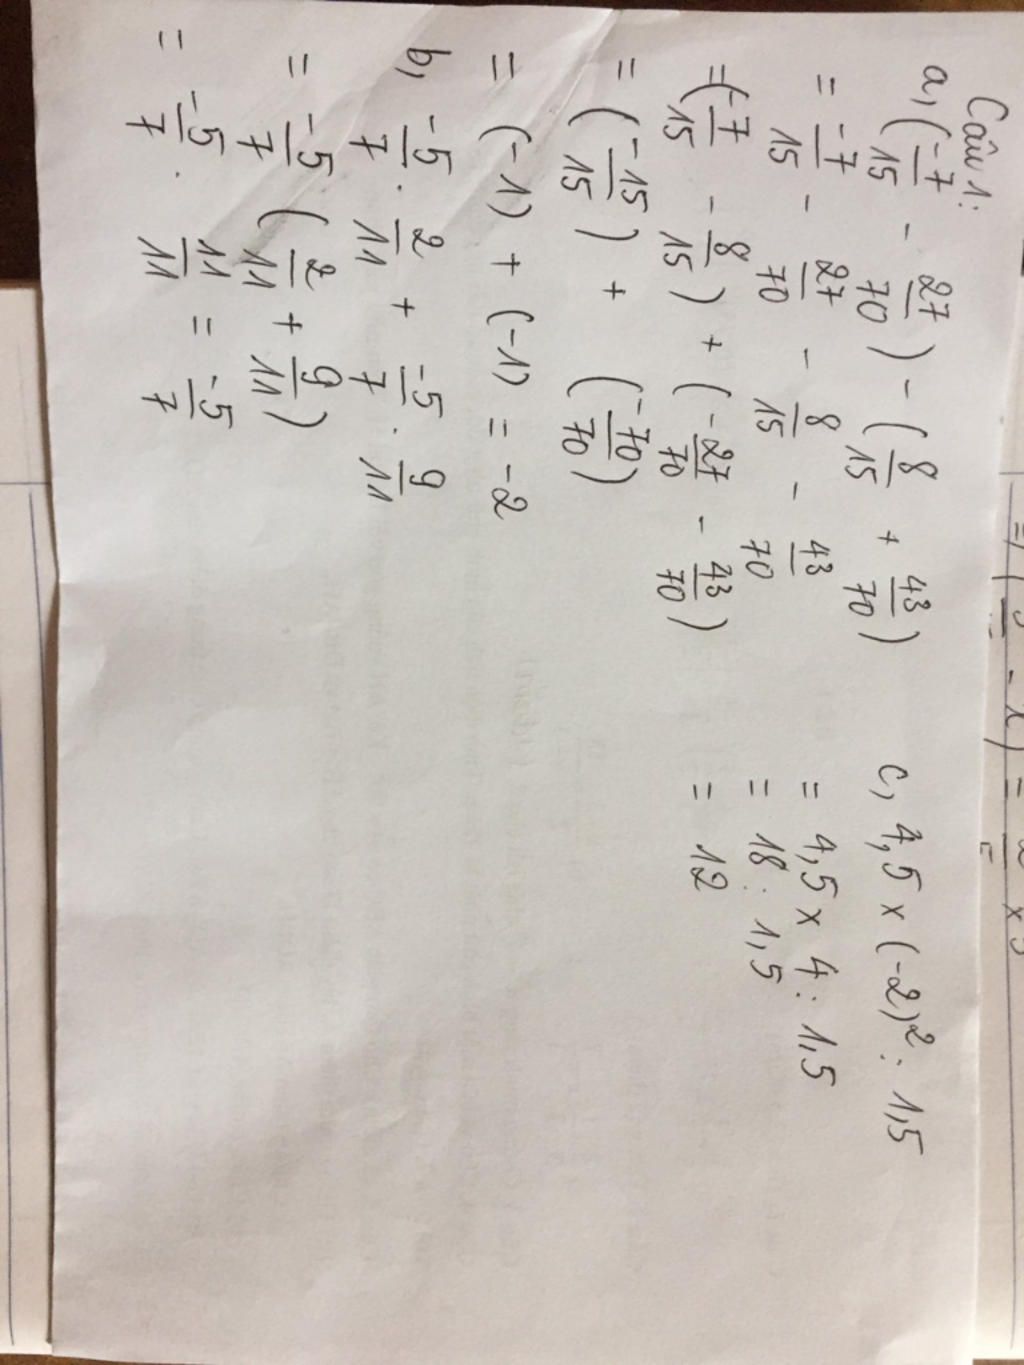 Câu 1:
a, (-7/15 - 27/70) - (8/15 + 43/70)
= -7/15 - 27/70 - 8/15 - 43/70
= (-7/15 - 8/15) + (-27/70 - 43/70)
= (-15/15) + (-70/70)
= (-1) + (-1) = -2
b, -5/7 . 2/11 + -5/7 . 9/11
= -5/7 (2/11 + 9/11)
= -5/7 . 11/11 = -5/7
c, 4,5 x (-2)² : 1,5
= 4,5 x 4 : 1,5
= 18 : 1,5
= 12